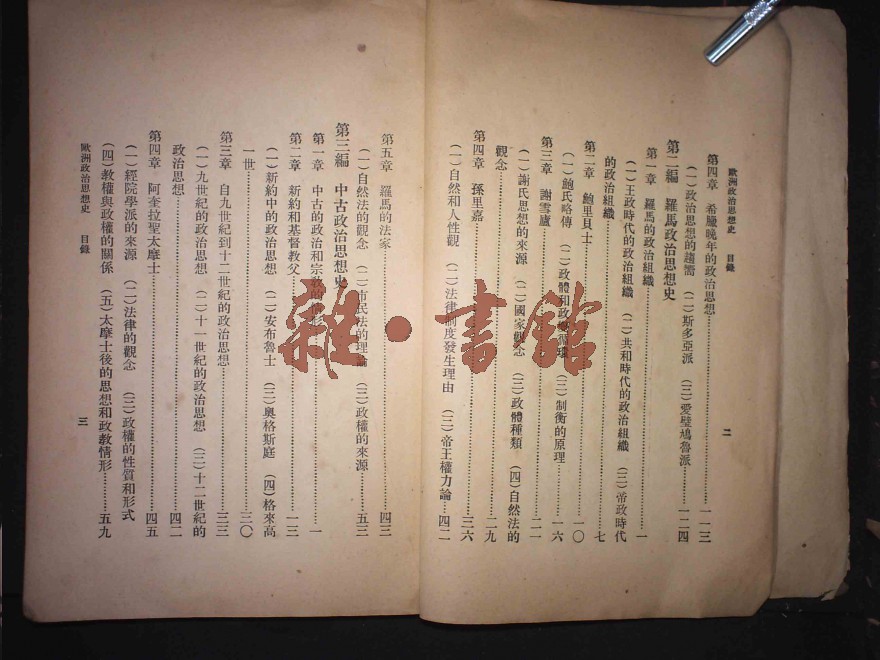 歐洲政治思想史　目錄
二
第四章　希臘晚年的政治思想……一一三
(一)政治思想的趨嚮　(二)斯多亞派　(三)愛璧鳩魯派……一二四
第二編　羅馬政治思想史
第一章　羅馬的政治組織……一
(一)王政時代的政治組織　(二)共和時代的政治組織　(三)帝政時代
的政治組織……七
第二章　鮑里貝士……一〇
(一)鮑氏略傳　(二)政體和政變循環　(三)制衡的原理……一六
第三章　謝雪盧……二一
(一)謝氏思想的來源　(二)國家觀念　(三)政體種類　(四)自然法的
觀念……二九
第四章　孫里嘉……三六
(一)自然和人性觀　(二)法律制度發生理由　(三)帝王權力論……四二
第五章　羅馬的法家……四三
(一)自然法的觀念　(二)市民法的理論　(三)政權的來源……五三
第三編　中古政治思想史
第一章　中古的政治和宗教的情形……一
第二章　新約和基督教父……一三
(一)新約中的政治思想　(二)安布魯士　(三)奧格斯庭　(四)格來高
一世……三〇
第三章　自九世紀到十二世紀的政治思想……三三
(一)九世紀的政治思想　(二)十一世紀的政治思想　(三)十二世紀的
政治思想……四二
第四章　阿奎拉聖太摩士……四五
(一)經院學派的來源　(二)法律的觀念　(三)政權的性質和形式
(四)教權與政權的關係　(五)太摩士後的思想和政教情形……五九
歐洲政治思想史　目錄
三
雜·書館